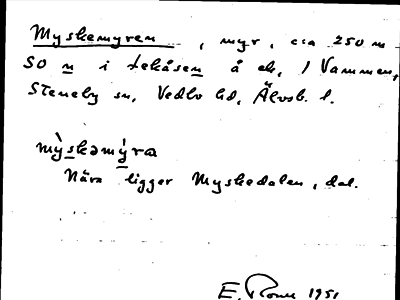 Myskemyren, myr, c:a 250 m
SO n i Lekåsen å ek, 1 Vammen,
Steneby sn, Vedbo hd, Älvsb. l.
mỳskəmýra
Nära ligger Myskedalen, dal.
E. 1951